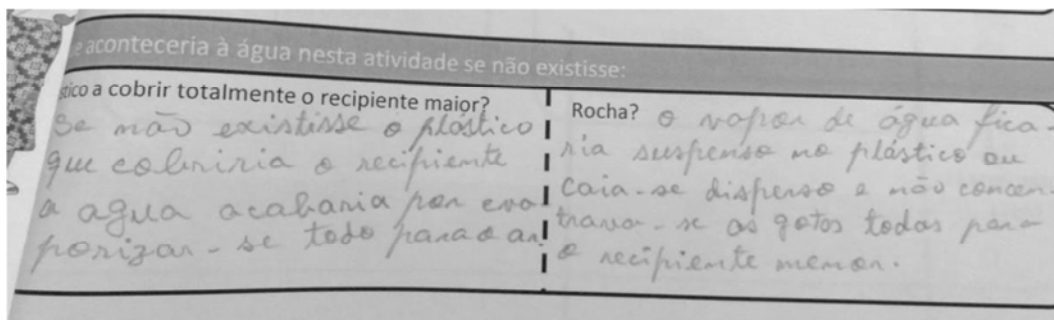 e aconteceria à água nesta atividade se não existisse:
stico a cobrir totalmente o recipiente maior?
Se não existisse o plástico
que cobriria o recipiente
a agua acabaria por eva
porizar-se todo para o ar
Rocha? o vapor de água fica-
ria suspenso no plástico ou
caia-se disperso e não concen
trava-se as gotas todas para
o recipiente menor.